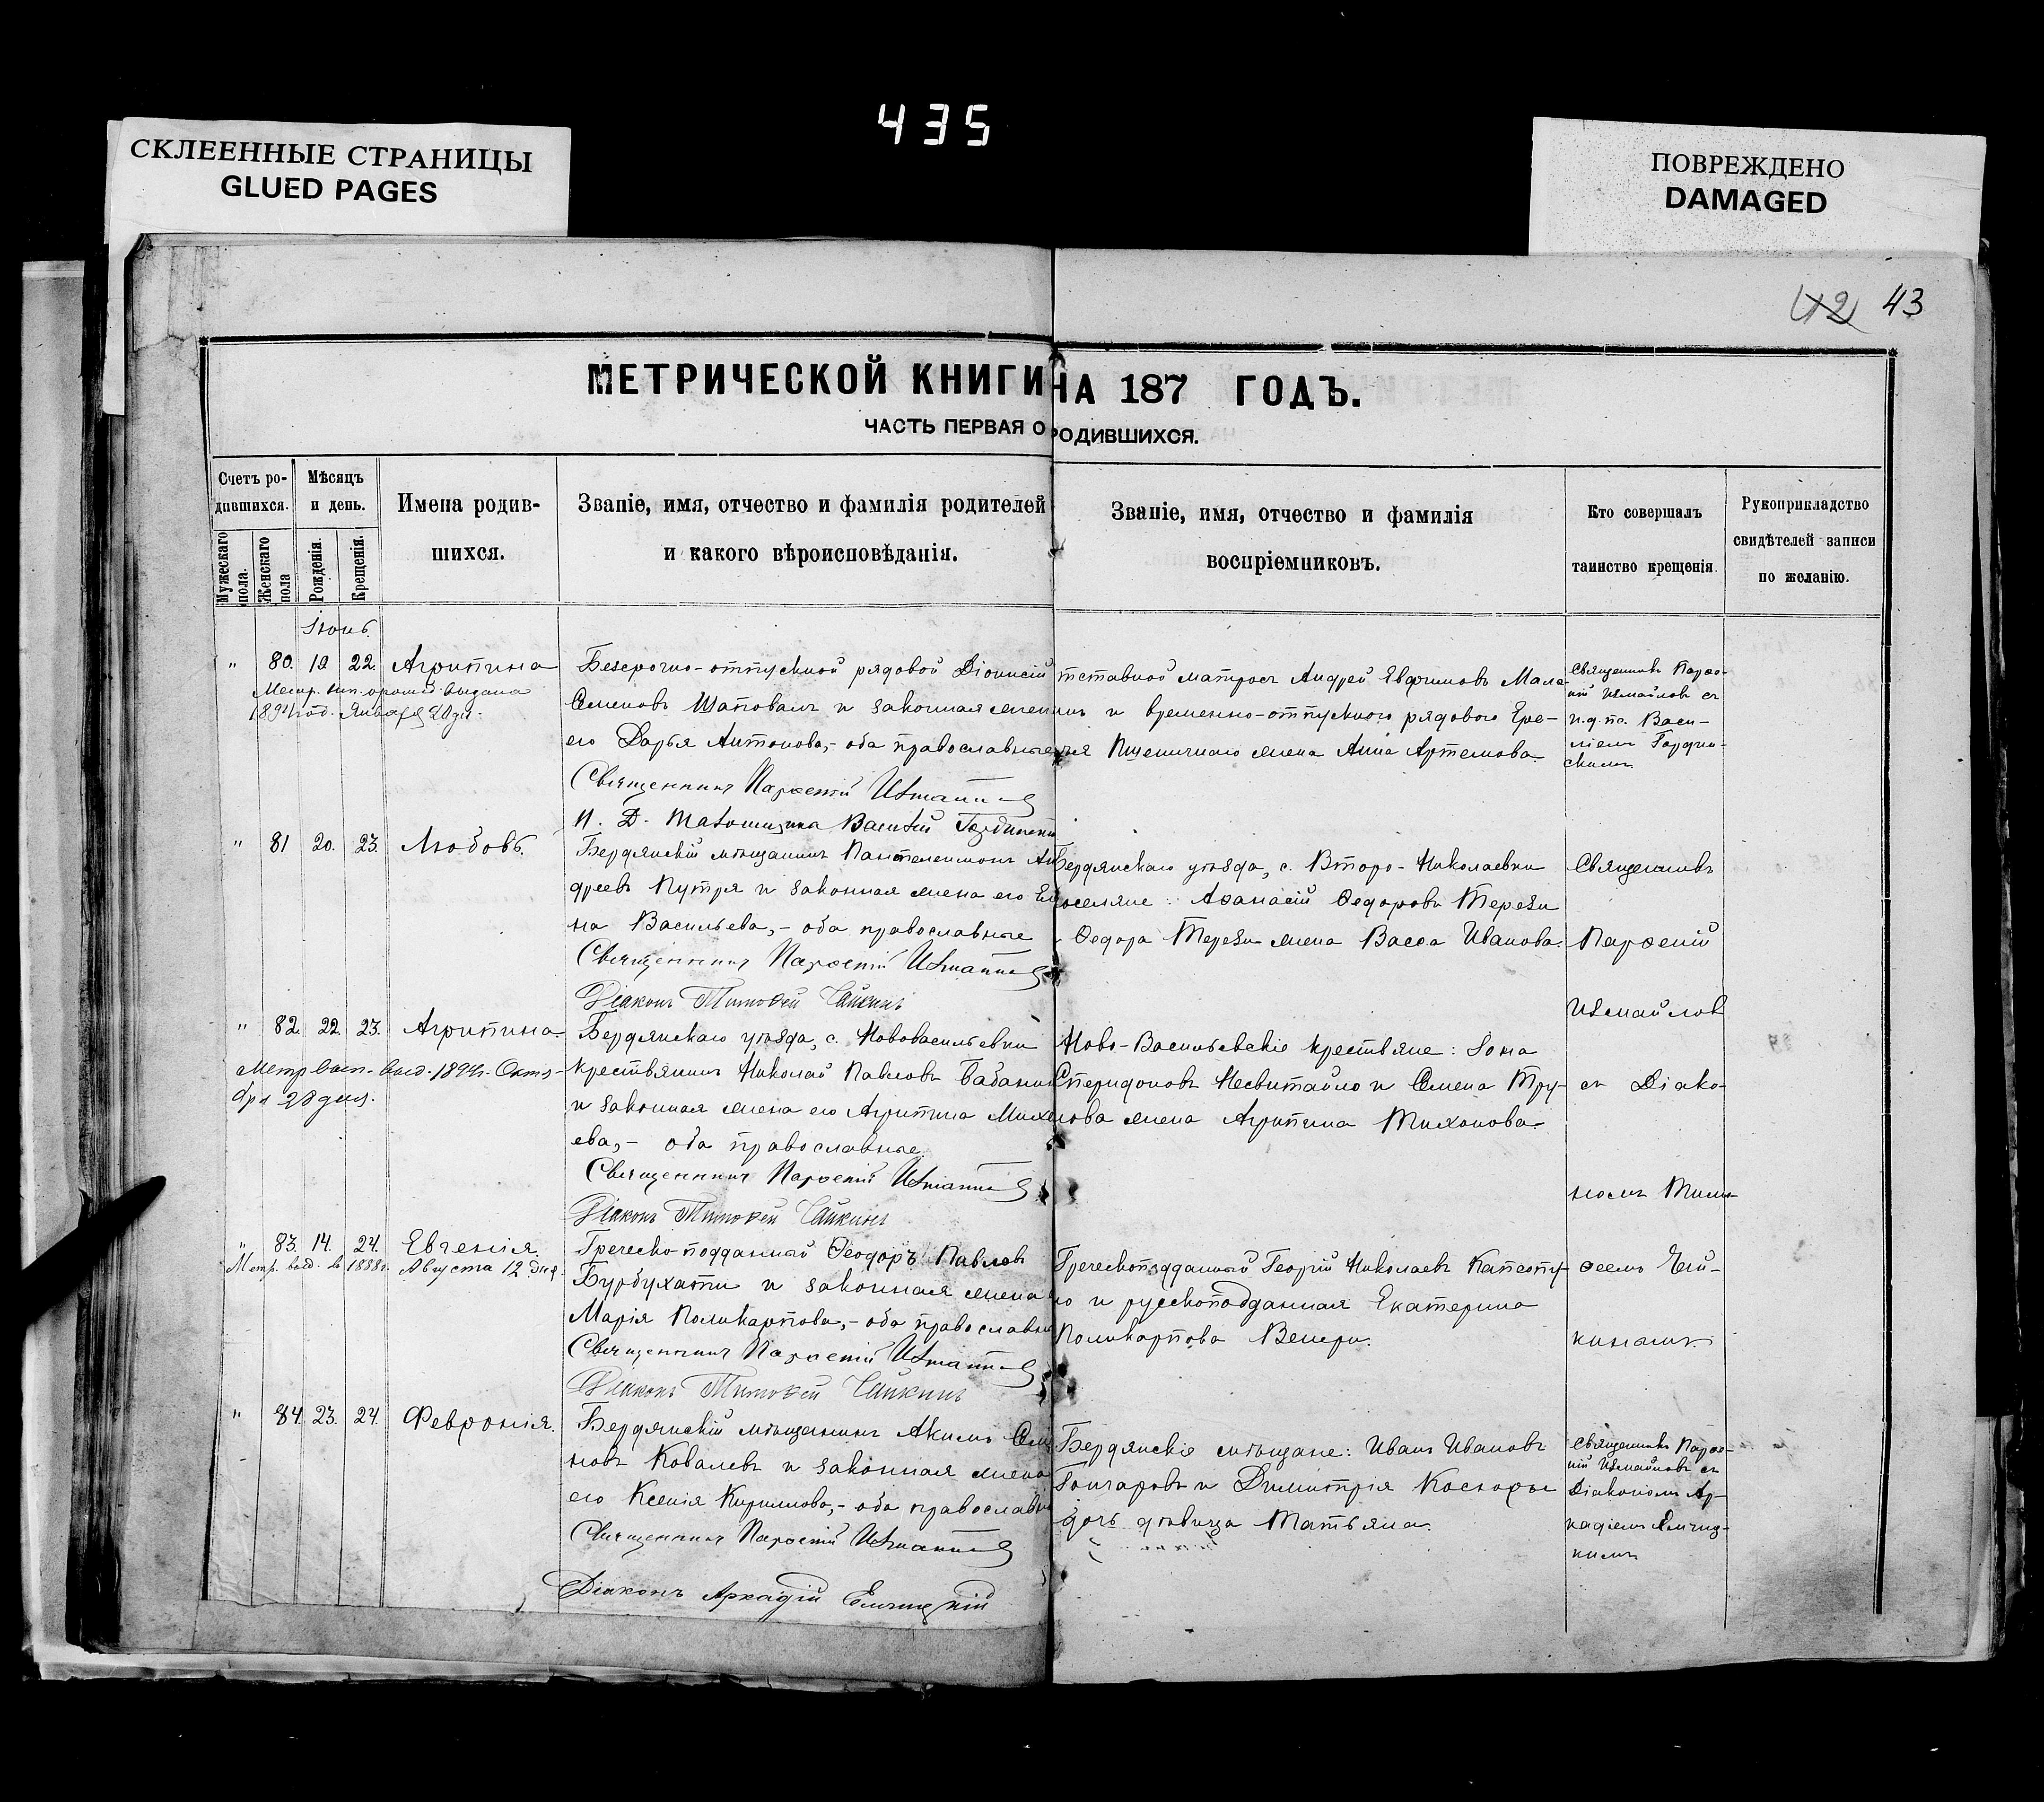 435
СКЛЕЕННЫЕ СТРАНИЦЫ
GLUED PAGES
ПОВРЕЖДЕНО
DAMAGED
42 43
МЕТРИЧЕСКОЙ КНИГИ НА 187 ГОДЪ.
ЧАСТЬ ПЕРВАЯ О РОДИВШИХСЯ.
Счетъ ро-
дившихся.
Мужескаго пола.
Женскаго пола
Мѣсяцъ
и день.
Рожденія.
Крещенія.
Имена родив-
шихся.
Званіе, имя, отчество и фамилія родителей
и какого вѣроисповѣданія.
Званіе, имя, отчество и фамилія
воспріемниковъ.
Кто совершалъ
таинство крещенія.
Рукоприкладство
свидѣтелей записи
по желанію.
Іюнь.
" 80. 19 22. Агрипина
Метр. вып. выдана
1891 год. Января 20 дн.
Безсрочно-отпускной рядовой Діонисій
Семеновъ Шаповалъ и законная жена
его Дарья Антонова,- оба православные
Священникъ Парѳеній Измайловъ
И. Д. Псаломщика Василій
тставной матросъ Андрей Евфимовъ
и временно-отпускного рядового Ере-
Пшеничнаго жена Анна Артемова.
Священникъ Парѳе-
ній Измайловъ съ
и.д. пс. Васи-
ліемъ
" 81 20. 23. Любовь.
Бердянскій мѣщанинъ Пантелеимонъ Ан
дреевъ Путря и законная жена его
на Васильева,- оба православные
Священникъ Парѳеній Измайловъ
Діаконъ Тимоѳей Чайкинъ
Бердянскаго уѣзда, с. Второ-Николаевки
поселяне: Аѳанасій Ѳедоровъ Терези
Ѳедора Терези жена Васса Иванова.
Священникъ
Парѳеній
Измайлов
" 82. 22. 23. Агрипина.
Метр вып. выд. 1894г. Октя-
бря 28 дня.
Бердянскаго уѣзда, с. Нововасильевки
крестьянинъ Николай Павловъ Бабанин
и законная жена его Агрипина Михе
ева,- оба православные.
Священникъ Парѳеній Измайловъ
Діаконъ Тимоѳей Чайкинъ
Ново-Васильевскіе крестьяне: Іона
Спиридоновъ Несвитайло и Семена Тру-
нова жена Агрипина Тихонова.
съ Діако-
номъ Тимо-
" 83. 14. 24. Евгенія.
Метр. выд. въ 1888г. Августа 12 дня.
Греческо-подданный Ѳеодоръ Павловъ
Бурбухати и законная жена
Марія Поликарпова,- оба православн
Священникъ Парѳеній Измайловъ
Діаконъ Тимоѳей Чайкинъ
Греческоподданный Георгій Николаевъ
и русскоподданная Екатерина
Поликарпова Венери.
ѳеемъ Чай-
кинымъ.
" 84. 23. 24. Февронія.
Бердянскій мѣщанинъ Акимъ Семе
новъ Ковалевъ и законная жена
его Ксенія Кирилова,- оба православн
Священникъ Парѳеній Измайловъ
Діаконъ Аркадій
Бердянскіе мѣщане: Иванъ Ивановъ
Гончаровъ и Димитрія
дочь дѣвица Татьяна.
Священникъ Парѳе-
ній Измайловъ съ
Діакономъ Ар-
кадіемъ
кимъ